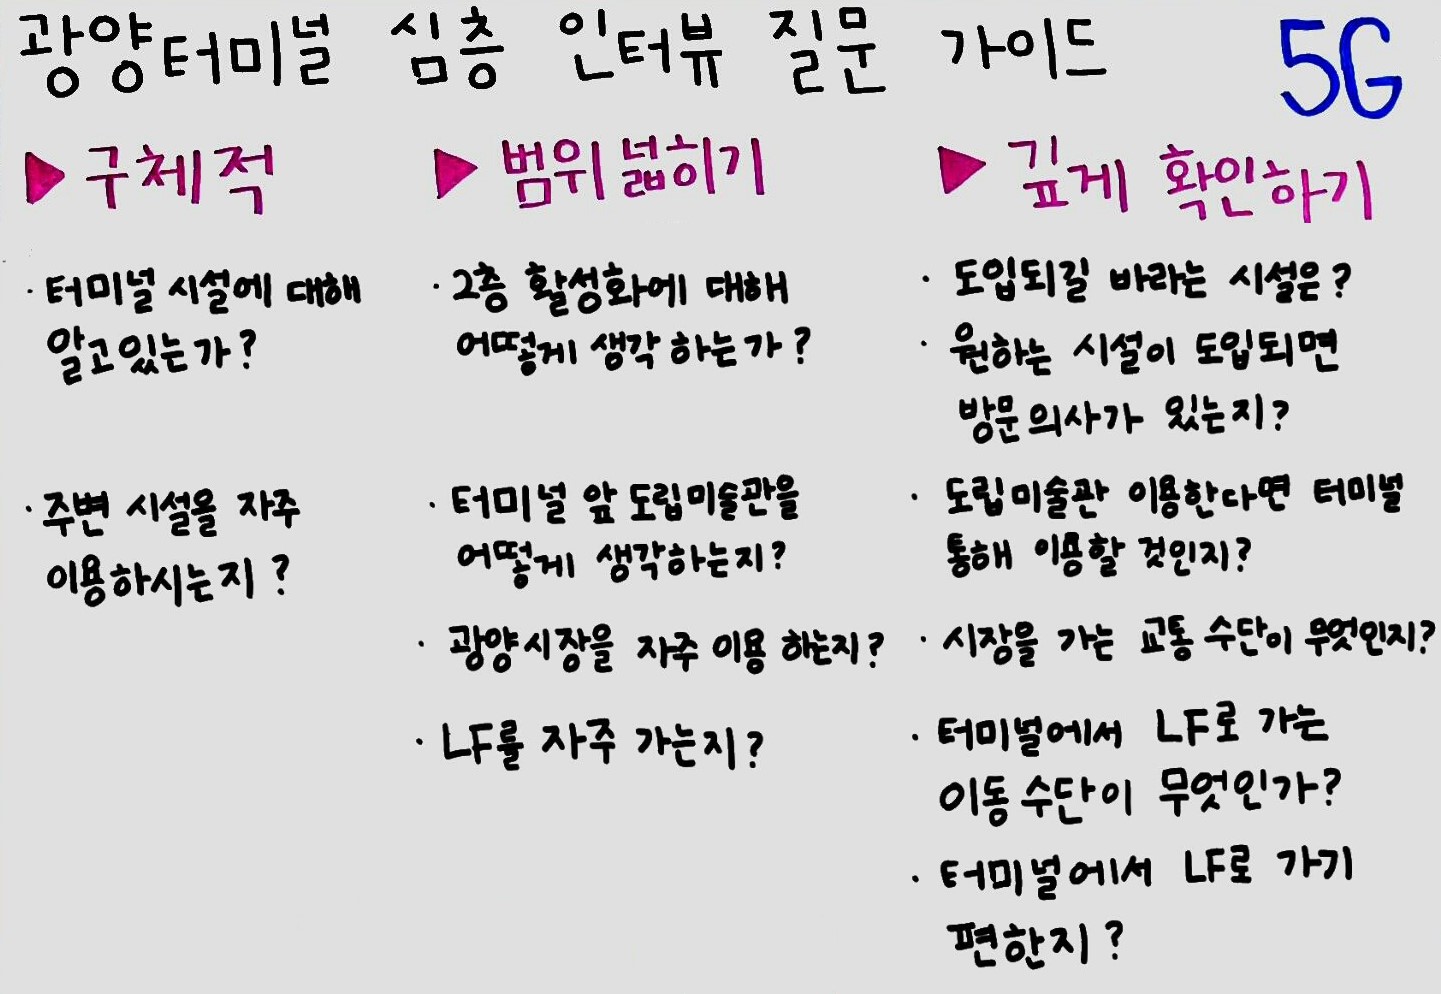 광양터미널 심층 인터뷰 질문 가이드 5G
▶ 구체적
· 터미널 시설에 대해
알고있는가?
· 주변 시설을 자주
이용하시는지?
▶ 범위 넓히기
· 2층 활성화에 대해
어떻게 생각 하는가?
· 터미널 앞 도립미술관을
어떻게 생각하는지?
· 광양시장을 자주 이용 하는지?
· LF를 자주 가는지?
▶ 깊게 확인하기
· 도입되길 바라는 시설은?
· 원하는 시설이 도입되면
방문의사가 있는지?
· 도립미술관 이용한다면 터미널
통해 이용할 것인지?
· 시장을 가는 교통 수단이 무엇인지?
· 터미널에서 LF로 가는
이동 수단이 무엇인가?
· 터미널에서 LF로 가기
편한지?